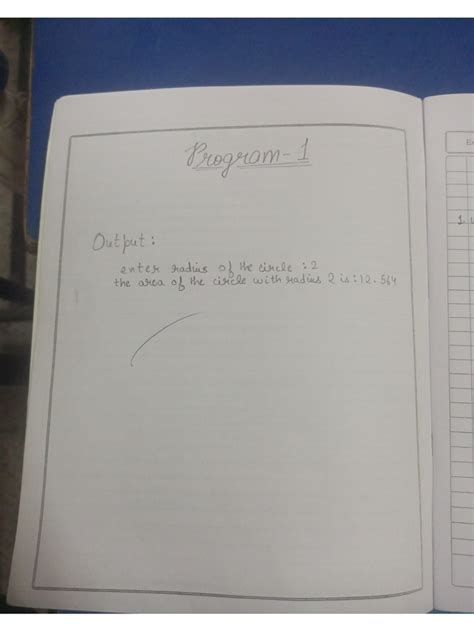 Program-1
Output:
enter radius of the circle : 2
the area of the circle with radius 2 is : 12.564
1.